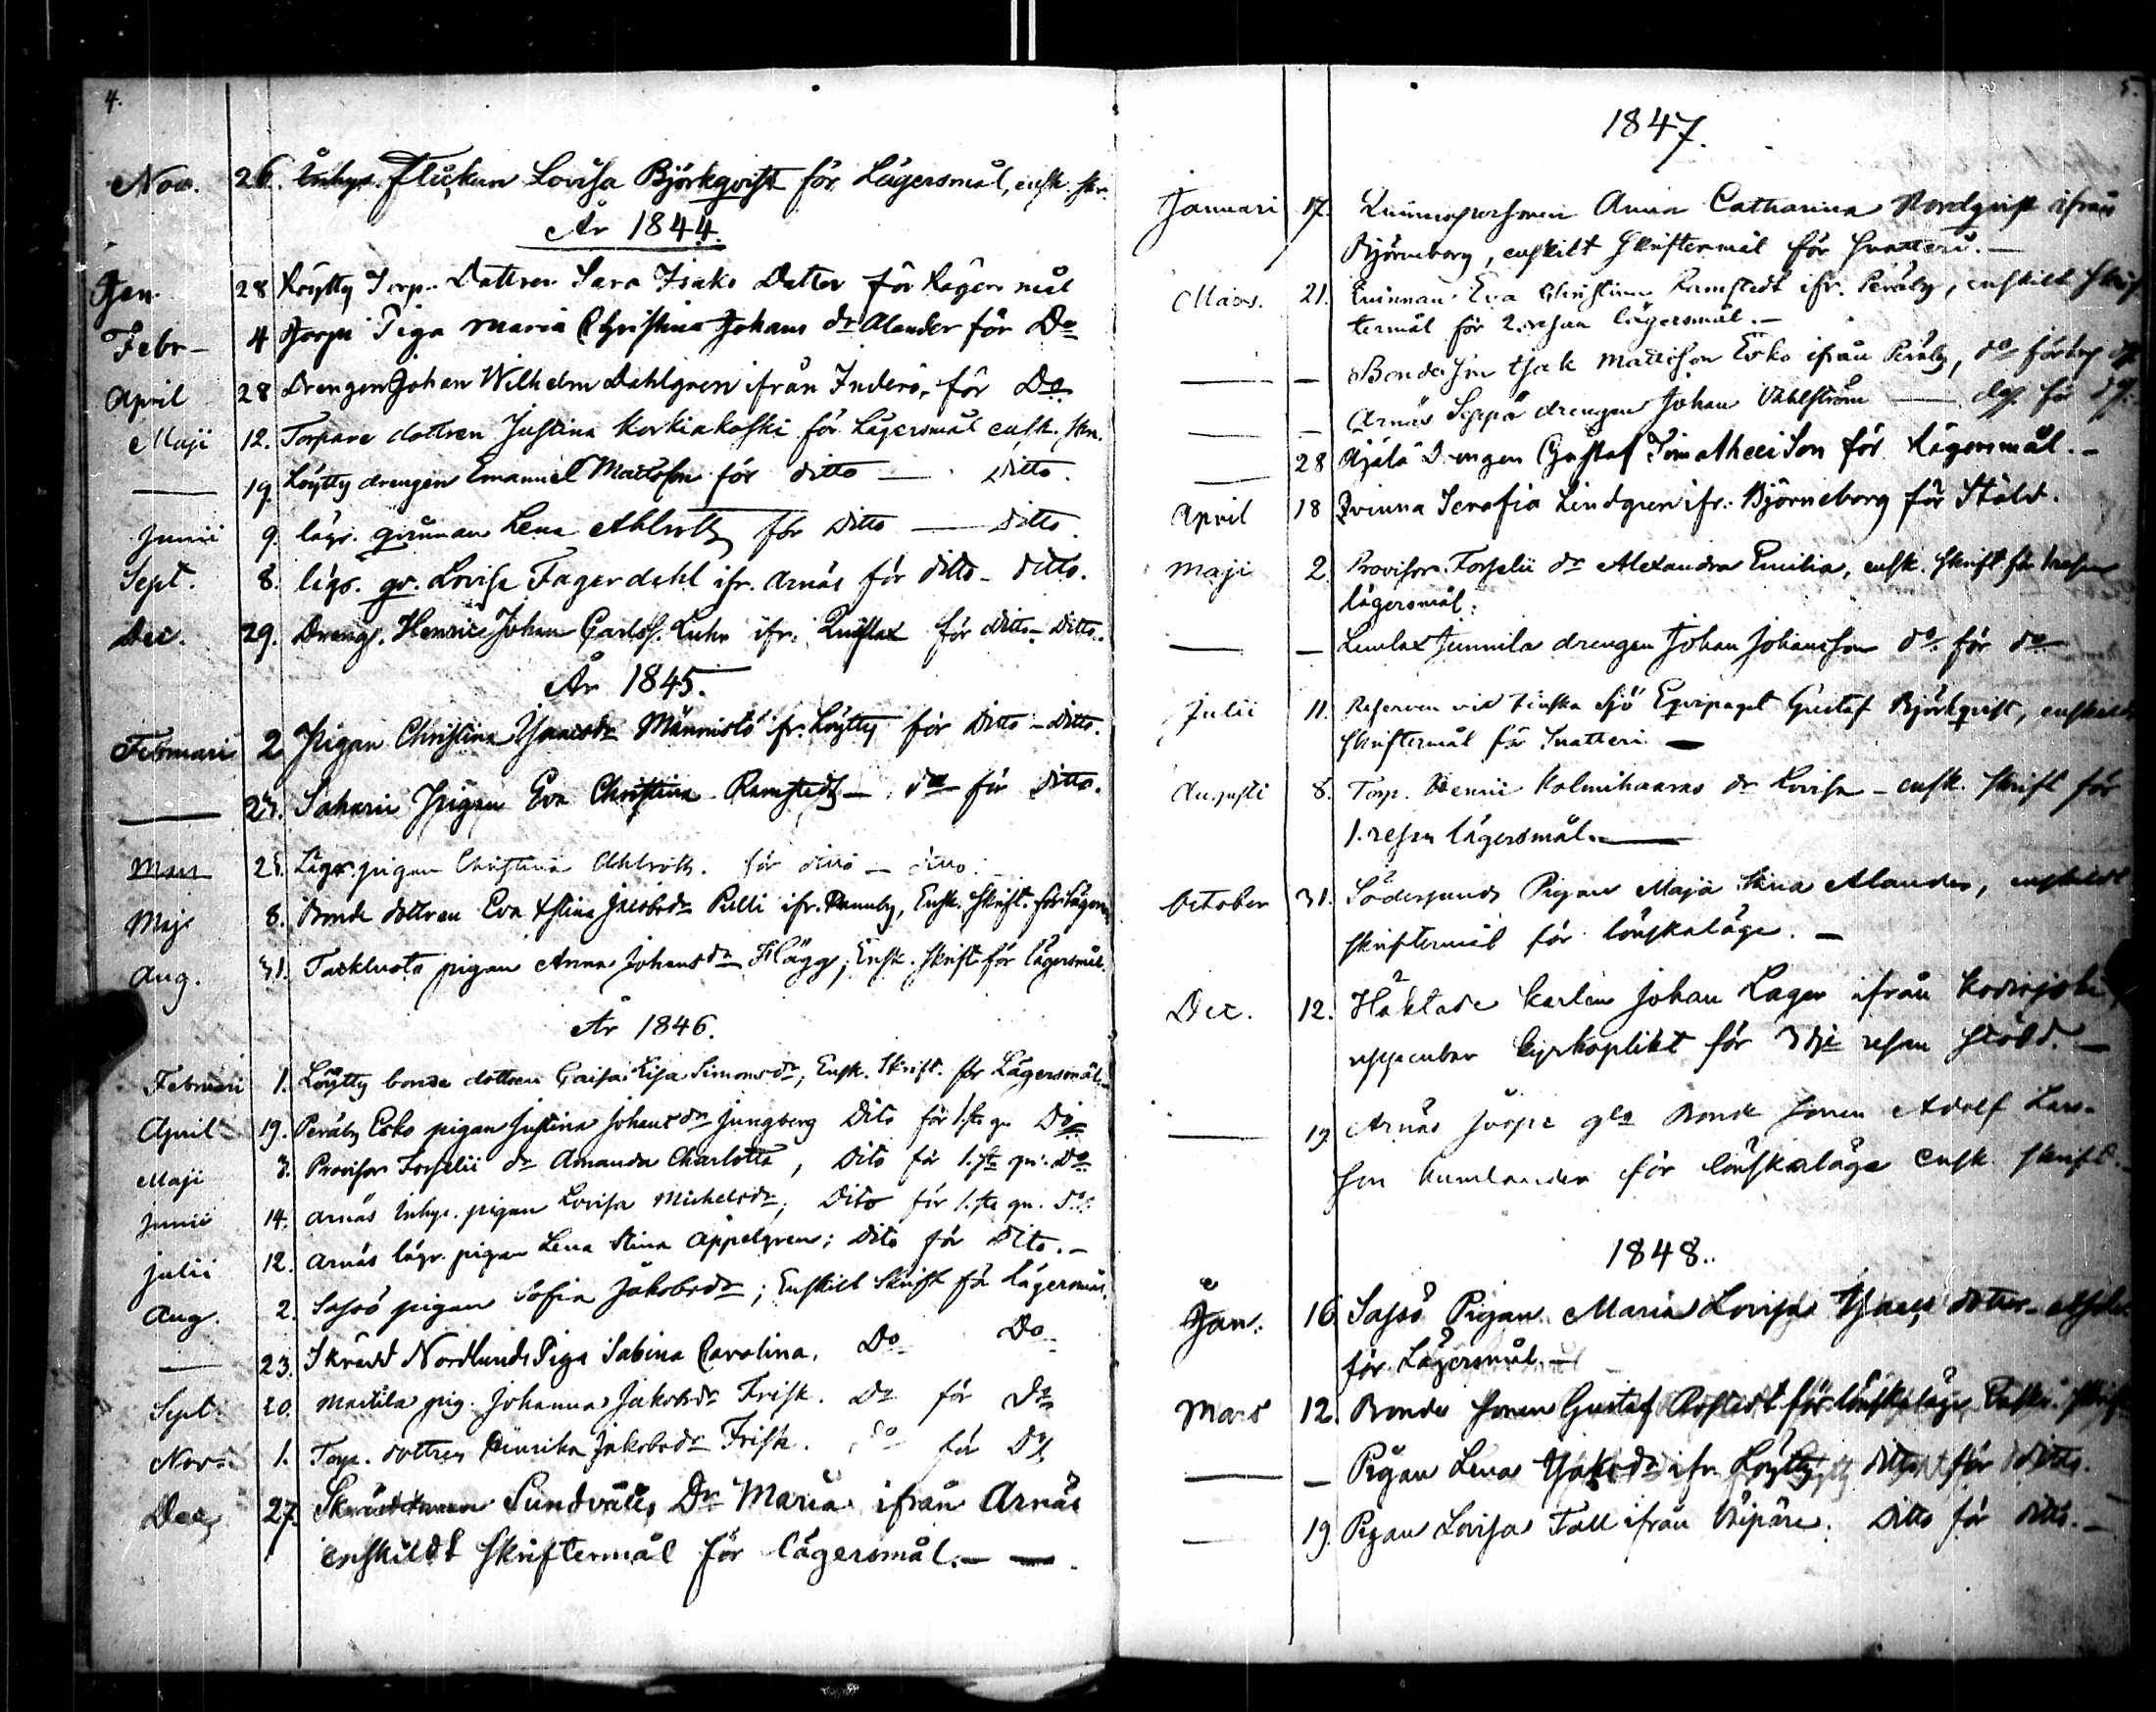 4.
Nov. 26. Inhys. Flickan Lovisa Björkqvist för Lägersmål, ensk. skr.
År 1844.
Jan 28 Löytty Torp. Dottren Sara Isaks Dotter för Lägersmål
Febr 4 Jorpi Piga Maria Christina Johans dr Alander för Do
April 28 Drengen Johan Wilhelm Dahlgren ifrån Inderö, för Do
Maji 12. Torpare dottren Justina Korkiakoski för Lägersmål ensk. skr.
— 19. Löytty drengen Emanuel Mattsson för ditto — Ditto.
Junii 9. lägr. qvinnan Lena Ahlroth för Ditto — Ditto.
Sept. 8. lägr. qv. Lovisa Fagerdahl ifr. Arnäs för ditto - ditto.
Dec. 29. Drengn. Henric Johan Carlss. Luhr ifr. för ditto - Ditto.
År 1845.
Februari 2 Pigan Christina Isaacsdr Männistö ifr. Löytty för Ditto - Ditto.
— 23. Saharis Pigan Eva Christina Ramstedt — do för Ditto.
Mars 25. Lägr. pigan Christina Ahlroth. för ditto — ditto.
Maji 8. Bonde dottren Eva Stina Jacobsdr Pelli ifr. Ensk. Skrift. för Lägersm
Aug. 31. Tackluoto pigan Anna Johansdr Hägg; Ensk. Skrift för lägersmål.
År 1846.
Februari 1. Löytty bonde dottren Caisa Lisa Simonsdr, Ensk. Skrift. för Lägersmål.
April 19. Peräby Esko pigan Justina Johansdr Jungberg Dito för 1.sta g. Do
Maji 3. Provisor Forselii dr Amanda Charlotta, Dito för 1.sta gn. Do
Junii 14. Arnäs Inhys. pigan Lovisa Michelsdr; Dito för 1.sta gn. Do.
Julii 12. Arnäs lägr. pigan Lena Stina Appelgren; Dito för Dito. —
Aug. 2. Sassö pigan Sofia Jakobsdr; Enskilt Skrift för Lägersmål.
— 23. Skrädd Nordlunds Piga Sabina Carolina. Do Do
Sept. 20. Mattila pig. Johanna Jakobsdr Frisk. Do för Do
Nov. 1. Torp. dottren Henrika Jakobsdr Frisk. Do för Do
Dec 27. Skräddaren Sundvalls Dr Maria ifrån Arnäs
enskildt skriftermål för lägersmål. — —
5.
1847.
Januari 17. Qvinnspersonen Anna Catharina Nordqvist ifrån
Björneborg, enskilt Skriftermål för snatteri. —
Mars. 21. Qvinnan Eva Christina Ramstedt ifr. Peräby, enskilt skrif
termål för 2. resan lägersmål. —
— — Bonde son Isak Mattsson Esko ifrån Peräby, do
— — Arnäs Seppä drengen Johan Vahlström — do för do.
— 28 Äijälä Drengen Gustaf Timotheeison för Lägersmål. —
April 18 Qvinna Serafia Lindgren ifr. Björneborg för Stöld.
Maji 2. Provisor Forselii dr Alexandra Emilia, ensk. skrift för 1 resan
lägersmål.
— — Lemlax Junnila drengen Johan Johansson do för do
Julii 11. Reserven vid Finska Sjö Equipaget Gustaf Björkqvist, enskildt
skriftermål för Snatteri —
Augusti 8. Torp. Henric Kolmihaaras dr Lovisa — ensk. skrift för
1. resan lägersmål. —
October 31. Södersunds Pigan Maja Stina Alander, enskildt
skriftermål för lönskaläge. —
Dec. 12. Häktade karlen Johan Lager ifrån Koivisjoki,
kyrkoplikt för 3dje resan stöld. —
— 19. Arnäs Jörpi gla Bonde sonen Adolf Lars-
son Kumlander för lönskaläge ensk. skrift.
1848.
Jan. 16. Sassö Pigan Maria Lovisa Isaacs dotter
för Lägersmål. —
Mars 12. Bonde sonen Gustaf för lönskaläge Enskr. skrift
— — Pigan Lena Isaksdr ifr. Löytty ditto för ditto.
— 19. Pigan Lovisa Fall ifrån Viipäre. Ditto för ditto. —